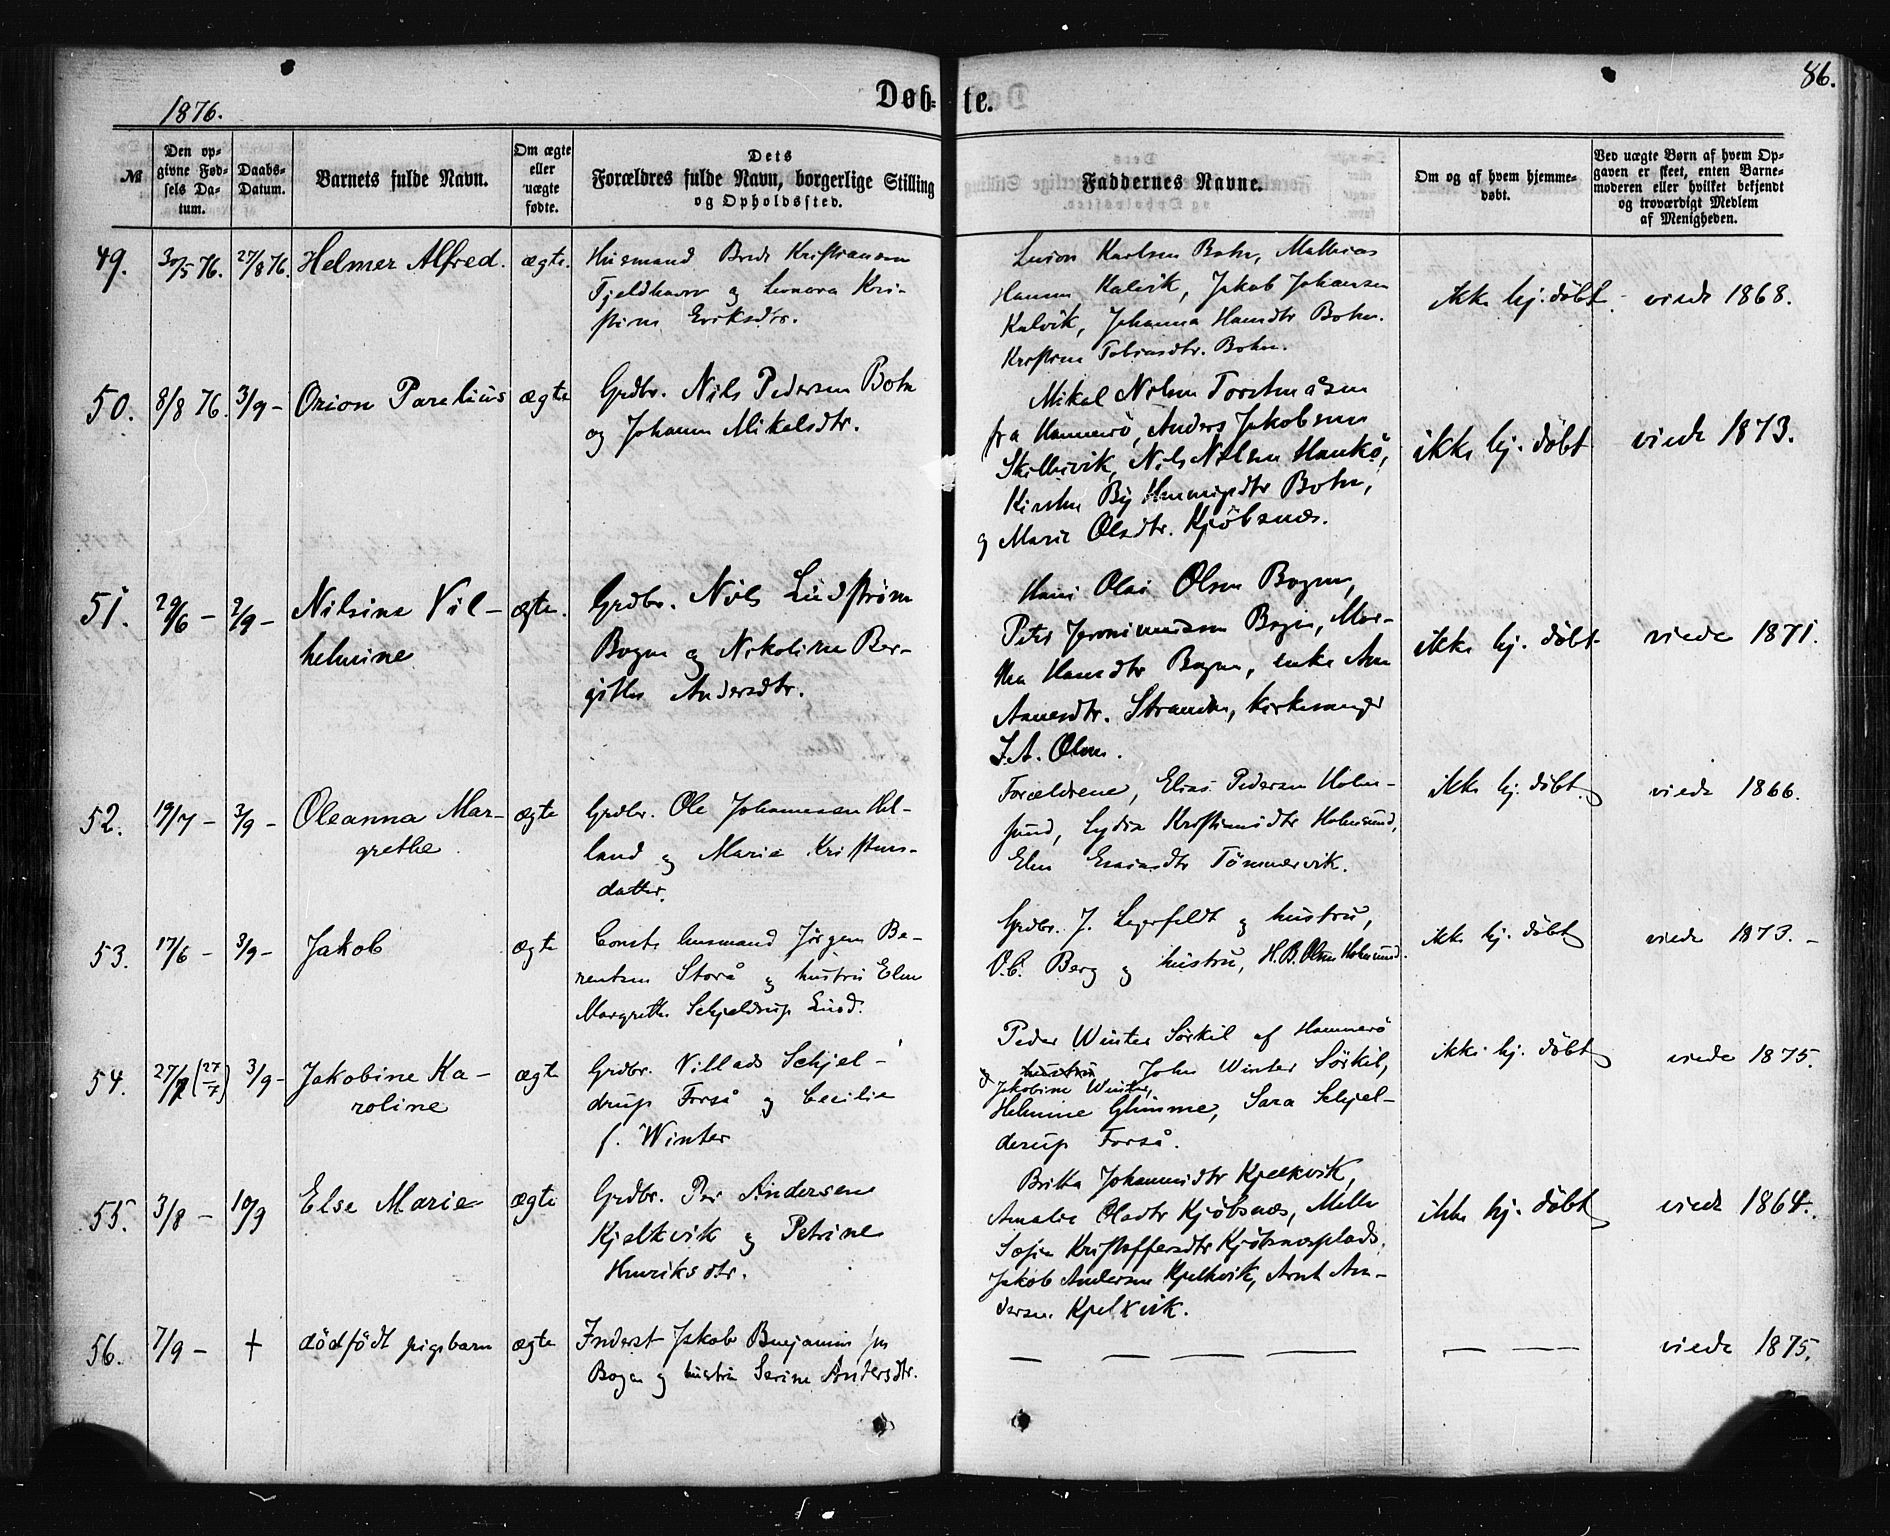 86.
1876.
Døb-te.
№
Den op-
givne Fød-
sels Da-
tum.
Daabs-
Datum.
Barnets fulde Navn.
Om ægte
eller
uægte
fødte.
Dets
Forældres fulde Navn, borgerlige Stilling
og Opholdssted.
Faddernes Navne.
Om og af hvem hjemme-
døbt.
Ved uægte Børn af hvem Op-
gaven er skeet, enten Barne-
moderen eller hvilket bekjendt
og troværdigt Medlem
af Menigheden.
49.
30/5 76.
27/8 76.
Helmer Alfred.
ægte.
Husmand Kristiansen
Fjeldhavn og Leonora Kri-
stine Eriksdtr.
Karlsen Botn, Mathias
Hansen Kalvik, Jakob Johansen
Kalvik, Johanna Hansdtr Botn.
Kristine Tobiasdtr. Botn.
ikke hj. døbt.
viede 1868.
50.
8/8 76.
3/9 -
Orion Parelius
ægte
Grdbr. Nils Pedersen Botn
og Johanna Mikalsdtr.
Mikal Nilsen
fra Hammerö, Anders Jakobsen
Nils Nilsen
Kirsten Botn,
og Marie Olsdtr. Kjöbsnæs.
ikke hj. døbt
viede 1873.
51.
29/6 -
2/9 -
Nilsine Vil-
helmine
ægte.
Grdbr. Nils Lindstrøm
Bogen og Nikoline Ber-
githe Andersdtr.
Hans Olai Olsen Bogen,
Peter Jeronimussen Bogen, Mar-
tha Hansdtr Bogen, enke
Stranden, kirkesanger
J. A. Olsen.
ikke hj. døbt
viede 1871.
52.
19/7 -
3/9 -
Oleanna Mar-
grethe
ægte
Grdbr. Ole Johannesen Hel-
land og Maria Kristens-
datter.
Forældrene, Elias Pedersen Holm-
sund, Lydia Holmsund,
Elen Esaiasdtr Tömmervik.
ikke hj. døbt
viede 1866.
53.
17/6 -
3/9 -
Jakob
ægte
Const. husmand Jörgen Be-
rentsen Storå og hustru Elen
Margrethe Schjeldrup Lund.
Grdbr. J. Lagerfeldt og hustru,
O. C. Berg og hustru, H. B. Olsen Holmsund.
ikke hj. døbt
viede 1873. -
54.
27/7 (27/7)
3/9 -
Jakobine Ka-
roline
ægte
Grdbr. Villads Schjel-
drup Forså og Cecilie
f. Winter
Peder Winter Sörkil af Hammerö
og hustru John Winter Sörkil,
Jakobine Winter,
Glimme, Sara Schjel-
derup Forså.
ikke hj. døbt
viede 1875.
55.
3/8 -
10/9
Else Marie
ægte
Grdbr. Per Andersen
Kjelkvik og Petrine
Henriksdtr.
Britta Johannesdtr Kjelkvik,
Amalie Olsdtr Kjöbsnæs, Mille
Sofie Kristoffersdtr Kjöbsnæsplads.
Jakob Andersen Kjelkvik, Arnt An-
dersen Kjelkvik.
ikke hj. døbt
viede 1864.
56.
7/9 -
+
dödfödt pigebarn
ægte
Inderst Jakob Benjaminsen
Bogen og hustru Serine Andersdtr.
— — — —
— —
viede 1875.